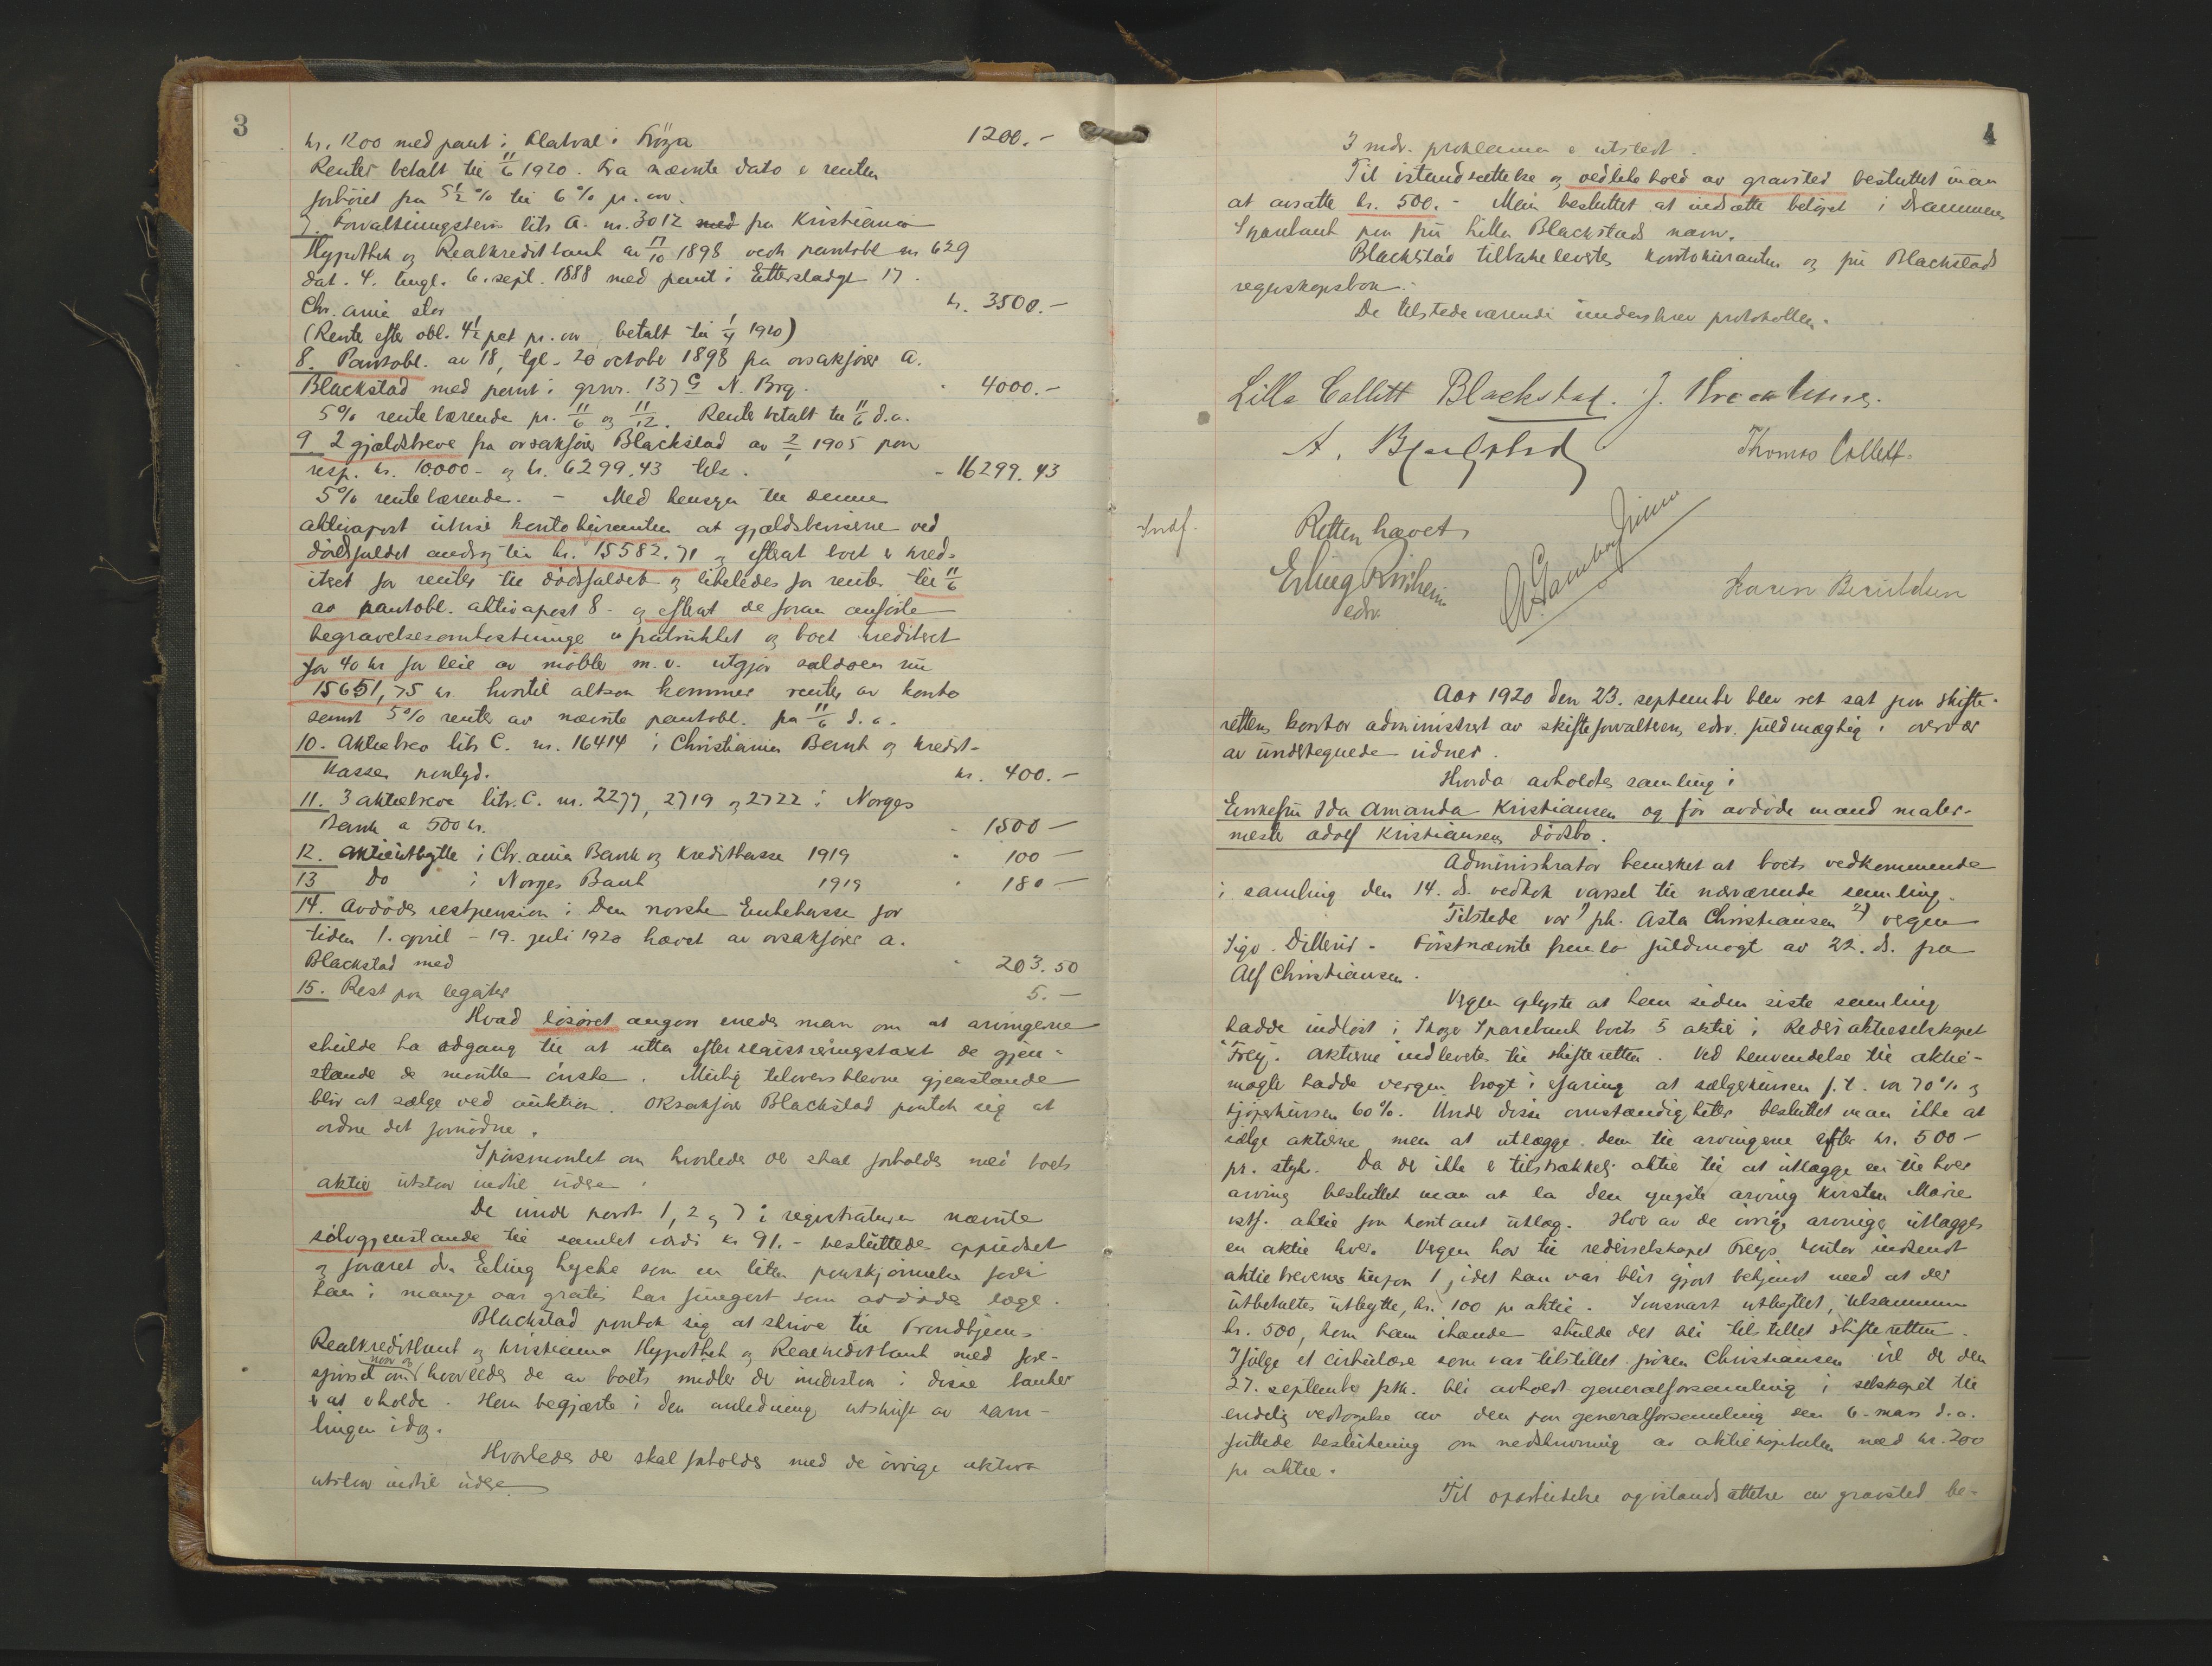 3
kr. 1200 med pant i Klatval i Fröya 1200.-
Renter betalt til 11/6 1920. Fra nævnte dato e renten
forhöiet fra 5 1/2 % til 6 % pr. an.
7. Forvaltningsbevis litr. A. nr. 3012 med fra Kristiania
Hypothek og Realkreditbank av 17/10 1898 vedk pantobl nr 629
dat. 4. tingl. 6. sept. 1888 med pant i Etterstadgt 17.
Chr. ania stor kr. 3500.-
(Rente efter obl. 4 1/2 pct pr. an betalt til 1/4 1920)
8. Pantobl. av 18, tgl. 20 october 1898 fra orsakförer A.
Blackstad med pant i grnr. 137 G N. Brg. " 4000.-
5% rentebærende pr. 11/6 og 11/12. Rente betalt til 11/6 d.a.
9. 2 gjældsbreve fra orsakförer Blackstad av 2/1 1905 paa
resp. kr. 10.000- og kr. 6299.43 tils. - 16299.43
5% rentebærende. - Med hensyn til denne
aktivapost utviser kontokuranten at gjældsbevisene ved
dödsfaldet androg til kr. 15582.71 og efterat boet e kred-
iteret for renter til dödsfaldet og likeledes for renter til 11/6
av pantobl. aktivapost 8 - og efterat de foran anförte
begravelsesomkostninger er fratrukket og boet krediteret
for 40 kr for leie av möbler m.v. utgjör saldoen nu
15651,75 kr. hvortil altsaa kommer renter av konto
samt 5% renter av nævnte pantobl. fra 11/6 d.a.
10. Aktiebrev litr C. nr. 16414 i Christiania Bank og Kredit-
kasse paalyd. kr. 400.-
11. 3 aktiebreve litr. C. nr. 2277, 2719 og 2722 i Norges
Bank a 500 kr. - 1500 -
12. Aktieutbytte i Chr.ania Bank og Kreditkasse 1919 " 100 -
13 Do i Norges Bank 1919 " 180 -
14. Avdödes restpension i Den norske Enkekasse for
tiden 1. april - 19. juli 1920 hævet av orsakförer A.
Blackstad med " 203.50
15. Rest paa legater 5.-
Hvad lösöret angaar enedes man om at arvingerne
skulde ha adgang til at utta efter registreringstakst de gjen-
stande de maatte önske. Mulig tiloversblevne gjenstande
blir at sælge ved auktion. Orsakförer Blackstad paatok sig at
ordne det fornödne.
Spörsmaalet om hvorledes der skal forholdes med boets
aktier utstaar indtil videre.
De under post 1, 2 og 7 i registreringen nævnte
sölvgjenstande til samlet værdi kr 91.- besluttedes oppudset
og foræret dr. Erling Lycke som en liten paaskjönnelse fordi
han i mange aar gratis har fungert som avdödes læge.
Blackstad paatok sig at skrive til Trondhjems
Realkreditbank og Kristiania Hypothek og Realkreditbank med fore-
spörsel om naar og hvorledes de av boets midler der indestaar i disse banker
er at erholde. Han begjærte i den anledning utskrift av sam-
lingen idag.
Hvorledes der skal forholdes med de övrige aktiva
utstaar indtil videre
4
3 mdr. proklama e utstedt.
Til istandsættelse og vedlikehold av gravsted besluttet man
at avsætte kr. 500.- Man besluttet at indsætte belöpet i Drammens
Sparebank paa fru Lilla Blackstads navn.
Blackstad tilbakelevertes kontokuranten og fru Blackstads
regnskapsbok.
De tilstedeværende underskrev protokollen.
Lilla Collett Blackstad.
A. Blackstad
Thomas Collett.
Indf.
Retten hævet
Erling
edsv.
Karen
Aar 1920 den 23. september blev ret sat paa skifte-
rettens kontor administrert av skifteforvalterens edsv. fuldmægtig i overvær
av undertegnede vidner.
Hvorda avholdtes samling i
Enkefru Ida Amanda Kristiansen og för avdöde mand maler-
mester Adolf Kristiansens dödsbo.
Administrator bemerket at boets vedkommende
i samling den 14. ds. vedtok varsel til nærværende samling.
Tilstede var 1) frk. Asta Christiansen 2) vergen
Sigv. Dillerud - Förstnævnte fremla fuldmagt av 22. ds. fra
Alf Christiansen.
Vergen oplyste at han siden siste samling
hadde indlöst i Skoger Sparebank boets 5 aktier i Rederiaktieselskapet
"Frey". Aktierne indlevertes til skifteretten. Ved henvendelse til aktie-
mægler hadde vergen bragt i erfaring at sælgerkursen f.t. var 70% og
kjöperkursen 60%. Under disse omstændigheter besluttet man ikke at
sælge aktierne men at utlægge dem til arvingene efter kr. 500-
pr. styk. Da der ikke e tilstrækkelig aktier til at utlægge en til hver
arving besluttet man at la den yngste arving Kirsten Marie
istf. aktie faa kontant utlæg. Hver av de övrige arvinger utlægges
en aktie hver. Vergen har til rederiselskapet Freys kontor indsendt
aktiebrevenes kupon 1, idet han var blit gjort bekjendt med at der
utbetaltes utbytte, kr. 100 pr aktie. Saasnart utbyttet, tilsammen
kr. 500, kom ham ihænde skulde det bli tilstillet skifteretten.
Ifölge et cirkulære som var tilstillet fröken Christiansen vil der den
27. september fstk. bli avholdt generalforsamling i selskapet til
endelig vedtagelse av den paa generalforsamling den 6. mars d.a.
fattede beslutning om nedskrivning av aktiekapitalen med kr. 200
pr aktie.
Til oparbeidelse og istandsættelse av gravsted be-